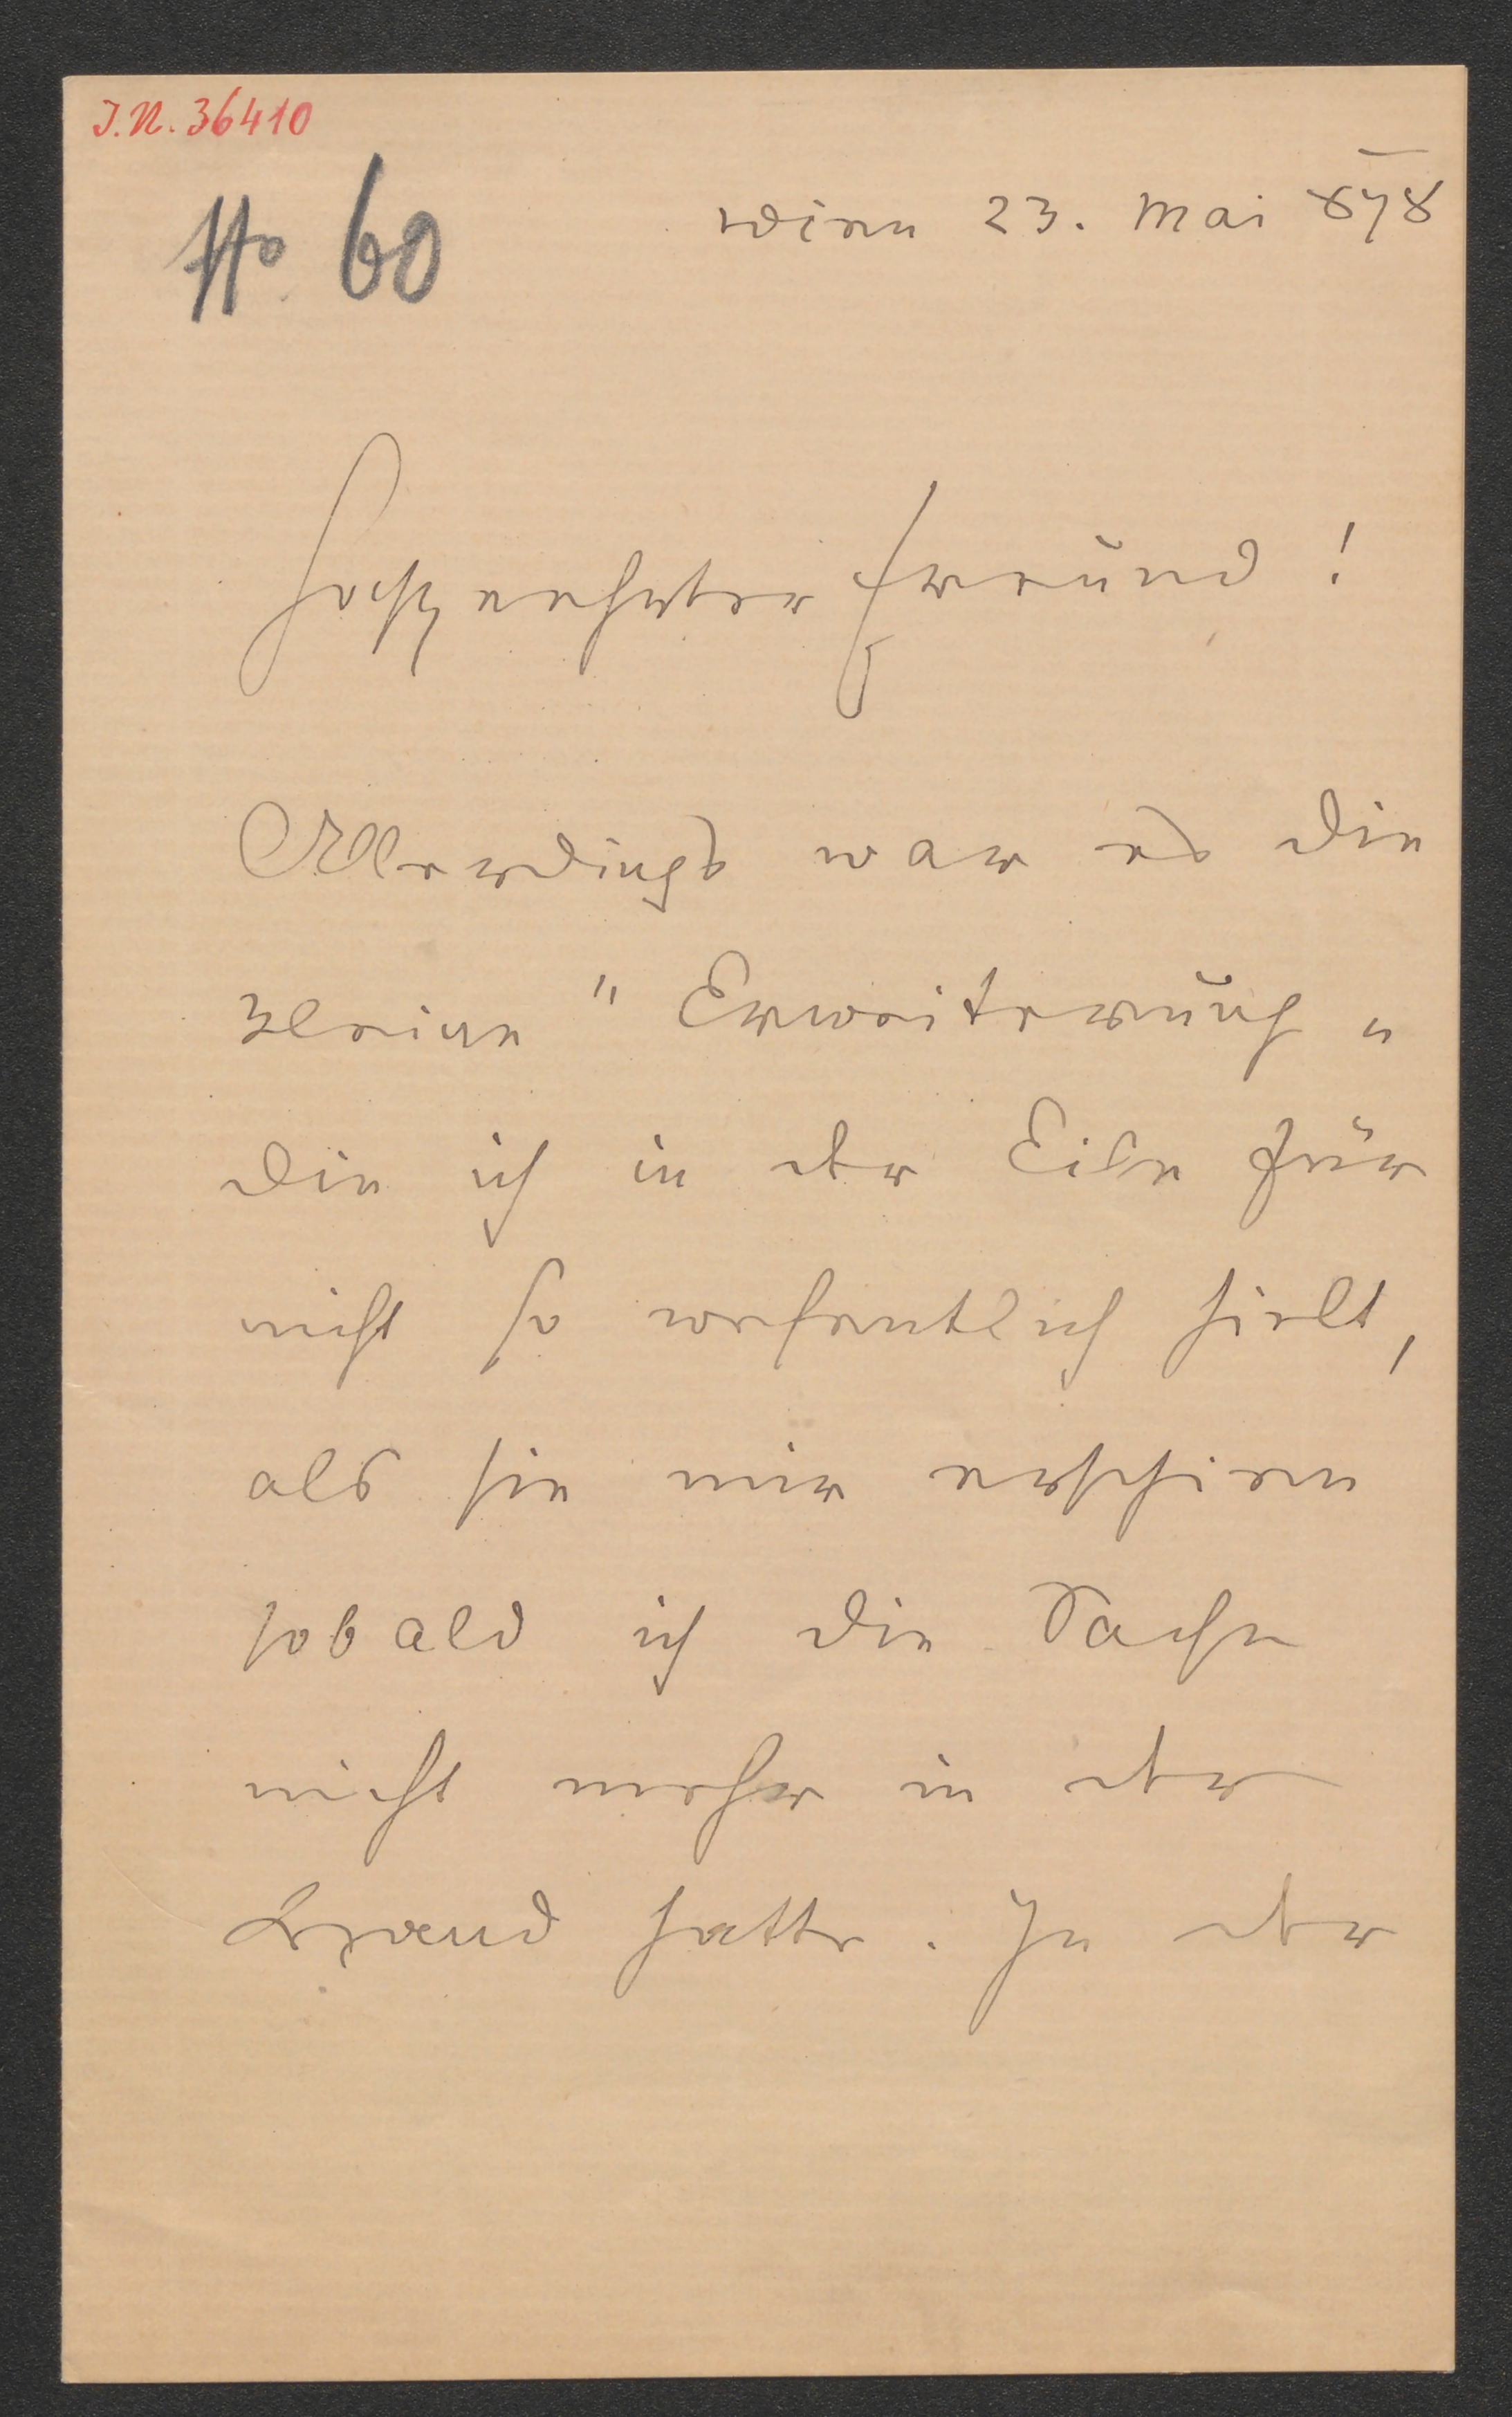 I.N. 36410
No. 60
Wien 23. Mai 878
Hochgeehrter Freund!
Allerdings war es die
kleine "Erweiterung"
die ich in der Eile für
nicht so wesentlich hielt,
als sie mir erschien
sobald ich die Sache
nicht mehr in der
Hand hatte. In der